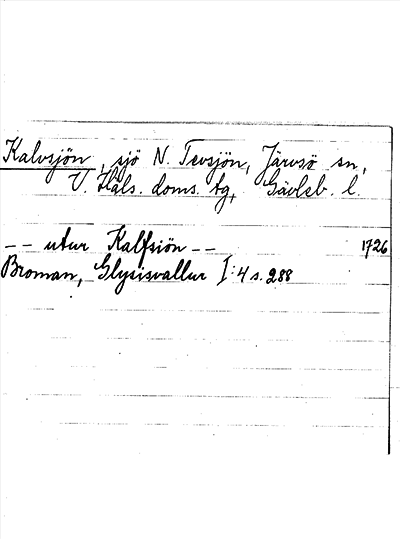 Kalvsjön, sjö N. Tevsjön, Järvsö sn,
V. Häls. doms. tg, Gävleb. l.
-- utur Kalfsiön -- 1726
Broman, Glysisvallur I:4 s. 288